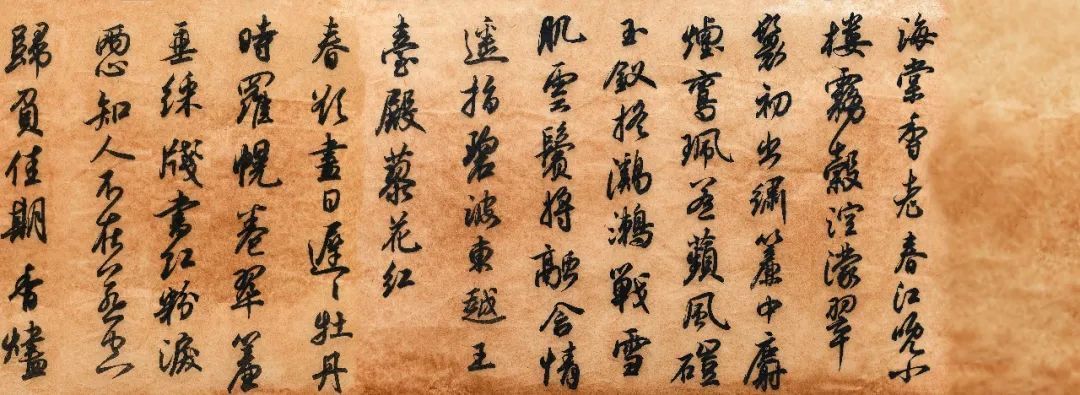 海棠香老春江晚小
樓霧縠涳濛翠
鬟初出繡簾中麝
煙鸞珮惹蘋風碾
玉釵搖鸂鶒戰雪
肌雲鬢將融含情
遥指碧波東越王
臺殿蓼花紅
春欲盡日遲〻牡丹
時羅幌卷翠簾
垂綵牋書紅粉淚
兩心知人不在燕空
歸負佳期香燼